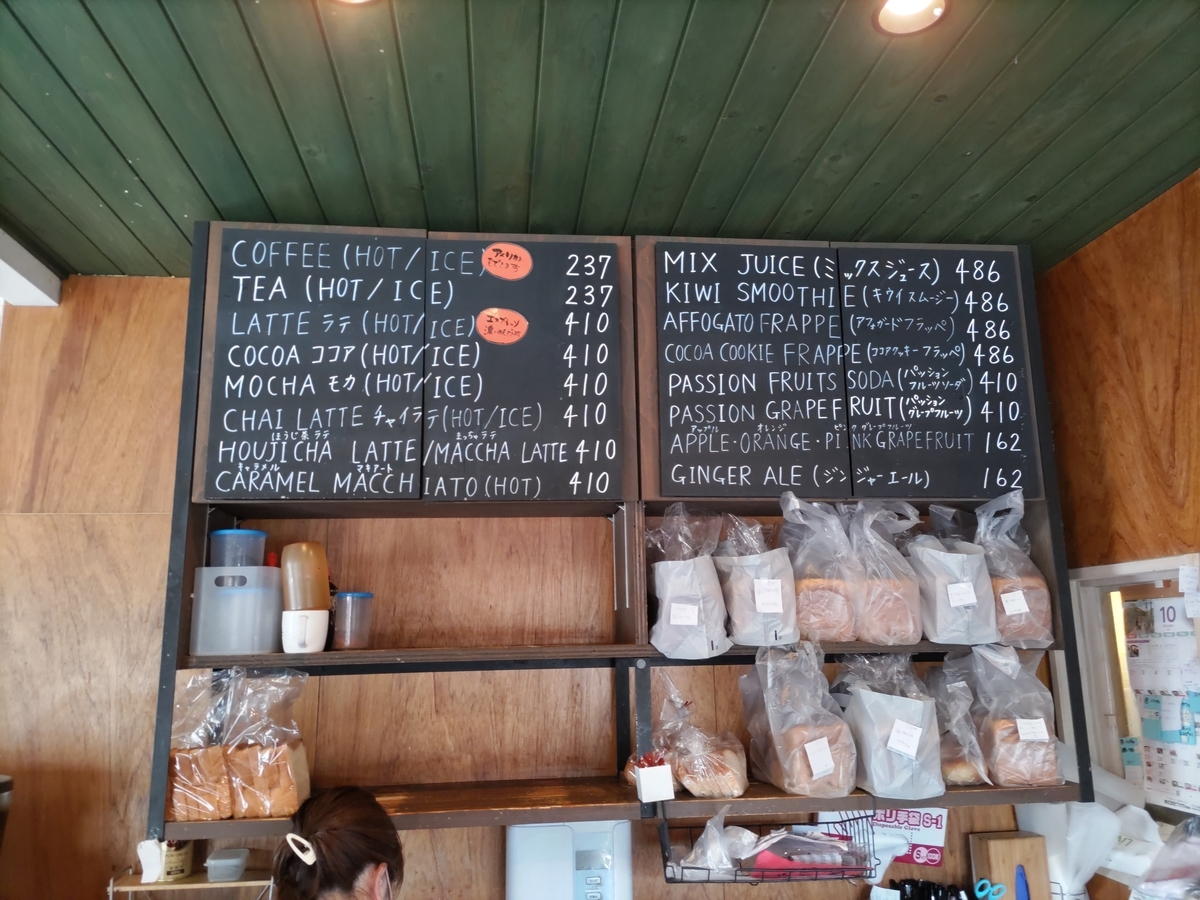 COFFEE (HOT/ICE) 237
TEA (HOT/ICE) 237
LATTE ラテ (HOT/ICE) 410
COCOA ココア (HOT/ICE) 410
MOCHA モカ (HOT/ICE) 410
CHAI LATTE チャイラテ (HOT/ICE) 410
ほうじ茶ラテ まっちゃラテ
HOUJICHA LATTE/MACCHA LATTE 410
キャラメル マキアート
CARAMEL MACCHIATO (HOT) 410
MIX JUICE (ミックスジュース) 486
KIWI SMOOTHIE (キウイスムージー) 486
AFFOGATO FRAPPE (アフォガードフラッペ) 486
COCOA COOKIE FRAPPE (ココアクッキーフラッペ) 486
PASSION FRUITS SODA (パッションフルーツソーダ) 410
PASSION GRAPEFRUIT (パッショングレープフルーツ) 410
アップル オレンジ ピンクグレープフルーツ
APPLE・ORANGE・PINK GRAPEFRUIT 162
GINGER ALE (ジンジャーエール) 162
10
ポリ手袋 S-1
Disposable Glove